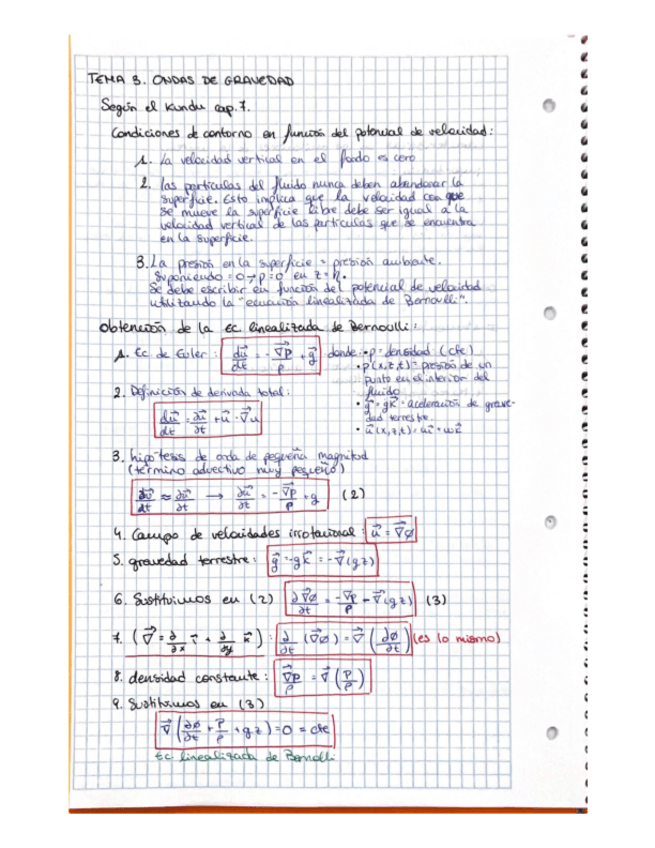 TEMA 3. ONDAS DE GRAVEDAD
Según el Kundu cap.7.
Condiciones de contorno en función del potencial de velocidad:
1. La velocidad vertical en el fondo es cero
2. las partículas del fluido nunca deben abandonar la
superficie. Esto implica que la velocidad con que
se mueve la superficie libre debe ser igual a la
velocidad vertical de las partículas que se encuentra
en la superficie.
3. La presión en la superficie = presión ambiente.
Suponiendo = 0 → p = 0 en z = η.
Se debe escribir en función del potencial de velocidad
utilizando la "ecuación linealizada de Bernoulli".
Obtención de la ec. linealizada de Bernoulli:
1. Ec. de Euler: du⃗/dt = -∇⃗p/ρ + g⃗ donde: • ρ = densidad (cte)
• p(x,z,t) = presión de un
punto en el interior del
fluido
• g⃗ = gk⃗ = aceleración de grave-
dad terrestre.
• u⃗(x,z,t) = ui⃗ + wk⃗
2. Definición de derivada total:
du⃗/dt = ∂u⃗/∂t + u⃗ · ∇⃗u
3. hipótesis de onda de pequeña magnitud
(término advectivo muy pequeño)
du⃗/dt ≈ ∂u⃗/∂t → ∂u⃗/∂t = -∇⃗p/ρ + g (2)
4. Campo de velocidades irrotacional: u⃗ = ∇⃗ø
5. gravedad terrestre: g⃗ = -gk⃗ = -∇⃗(gz)
6. Sustituimos en (2) ∂∇⃗ø/∂t = -∇⃗p/ρ - ∇⃗(gz) (3)
7. (∇⃗ = ∂/∂x i⃗ + ∂/∂y k⃗): ∂/∂t (∇⃗ø) = ∇⃗(∂ø/∂t) (es lo mismo)
8. densidad constante: ∇⃗p/ρ = ∇⃗(p/ρ)
9. Sustituimos en (3)
∇⃗(∂ø/∂t + p/ρ + gz) = 0 = cte
Ec. linealizada de Bernolli